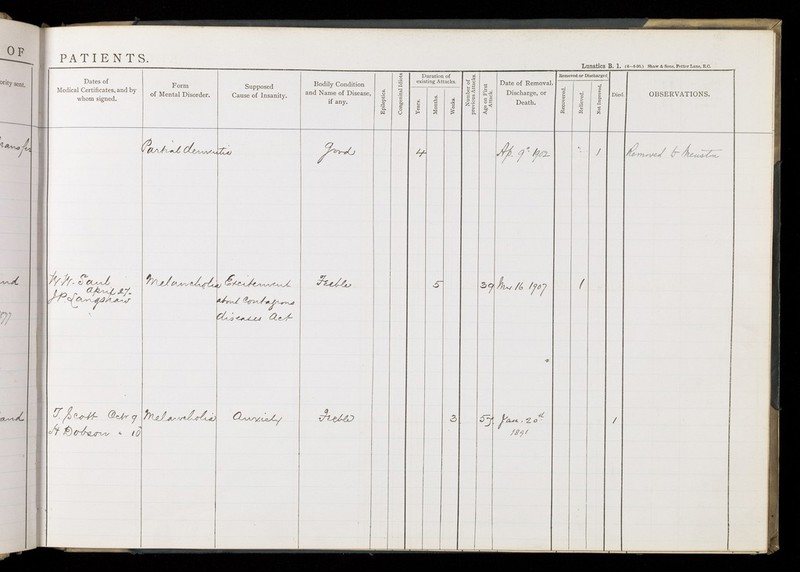 OF
PATIENTS.
Lunatics B. 1. (6-6.90.) Shaw & Sons, Fetter Lane, E.C.
Dates of
Medical Certificates, and by
whom signed.
Form
of Mental Disorder.
Supposed
Cause of Insanity.
Bodily Condition
and Name of Disease,
if any.
Epileptics.
Congenital Idiots
Duration of
existing Attacks.
Years.
Months.
Weeks.
Number of
previous Attacks.
Age on First
Attack.
Date of Removal,
Discharge, or
Death.
Removed or Discharged
Recovered.
Relieved.
Not Improved.
Died
OBSERVATIONS.
Partial dementia
Good
4
Ap. 9 1912
1
Removed to
W. W. Saul
April 27.
J P Langshaw
Melancholia
Excitement
about Contagious
diseases Act
Feeble
5
39
16 1907
1
T. Scott Octr 9
H Dobson " 10
Melancholia
Anxiety
Feeble
3
Jan. 20th
1891
1